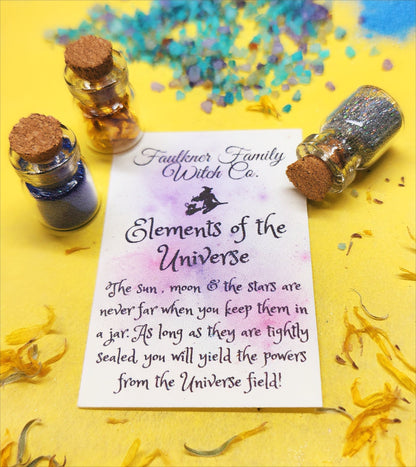 Faulkner Family
Witch Co.
Elements of the
Universe
The sun, moon & the stars are
never far when you keep them in
a jar. As long as they are tightly
sealed, you will yield the powers
from the Universe field!